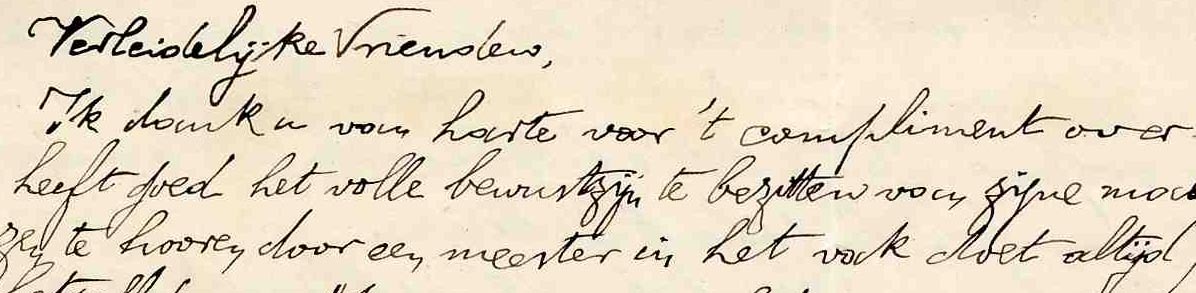 Verleidelijke Vrienden,
Ik dank u van harte voor 't compliment over
heeft goed het volle bewustzijn te bezitten van zijne
te hooren door een meester in het vak doet altijd